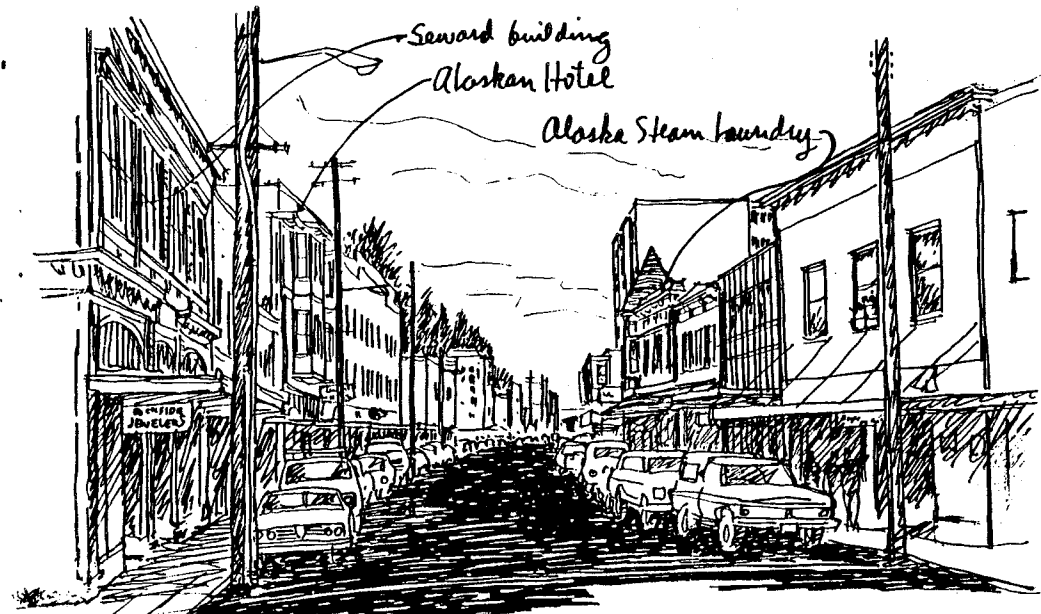 Seward building
Alaskan Hotel
Alaska Steam Laundry
JEWELERS